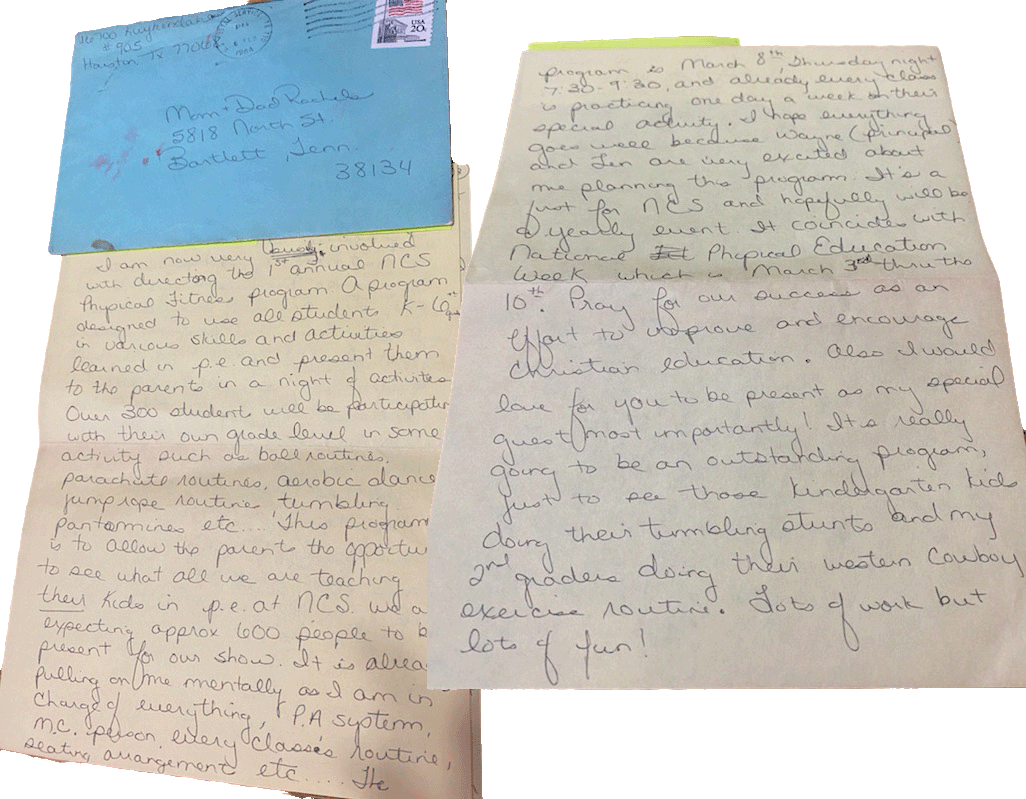 16700 Kuykendahl
# 905
Houston Tx 77068
USA
20c
Mom & Dad Rachels
5818 North St.
Bartlett, Tenn.
38134
I am now very busy, involved
with directing the 1st annual NCS
Physical Fitness program. A program
designed to use all students K-6
in various skills and activities
learned in p.e. and present them
to the parents in a night of activites
Over 300 student will be participatin
with their own grade level in some
activity such as ball routines,
parachute routines, aerobic dance
jump rope routine, tumbling
pantomines etc.... This program
is to allow the parents the opportu
to see what all we are teaching
their kids in p.e. at NCS. We a
expecting approx 600 people to b
present for our show. It is alrea
pulling on me mentally as I am in
charge of everything, P.A system,
M.C. person, every classes routine,
seating arrangement etc..... The
program is March 8th, Thursday night
7:30-9:30, and already every class
is practicing one day a week on their
special activity. I hope everything
goes well because Wayne (principal)
and Jen are very excited about
me planning this program. It's a
first for NCS and hopefully will be
a yearly event. It coincides with
National Physical Education
Week which is March 3rd thru the
10th. Pray for our success as an
effort to improve and encourage
Christian education. Also I would
love for you to be present as my special
guest most importantly! It's really
going to be an outstanding program,
just to see those Kindergarten kids
doing their tumbling stunts and my
2nd graders doing their western cowboy
exercise routine. Lots of work but
lots of fun!